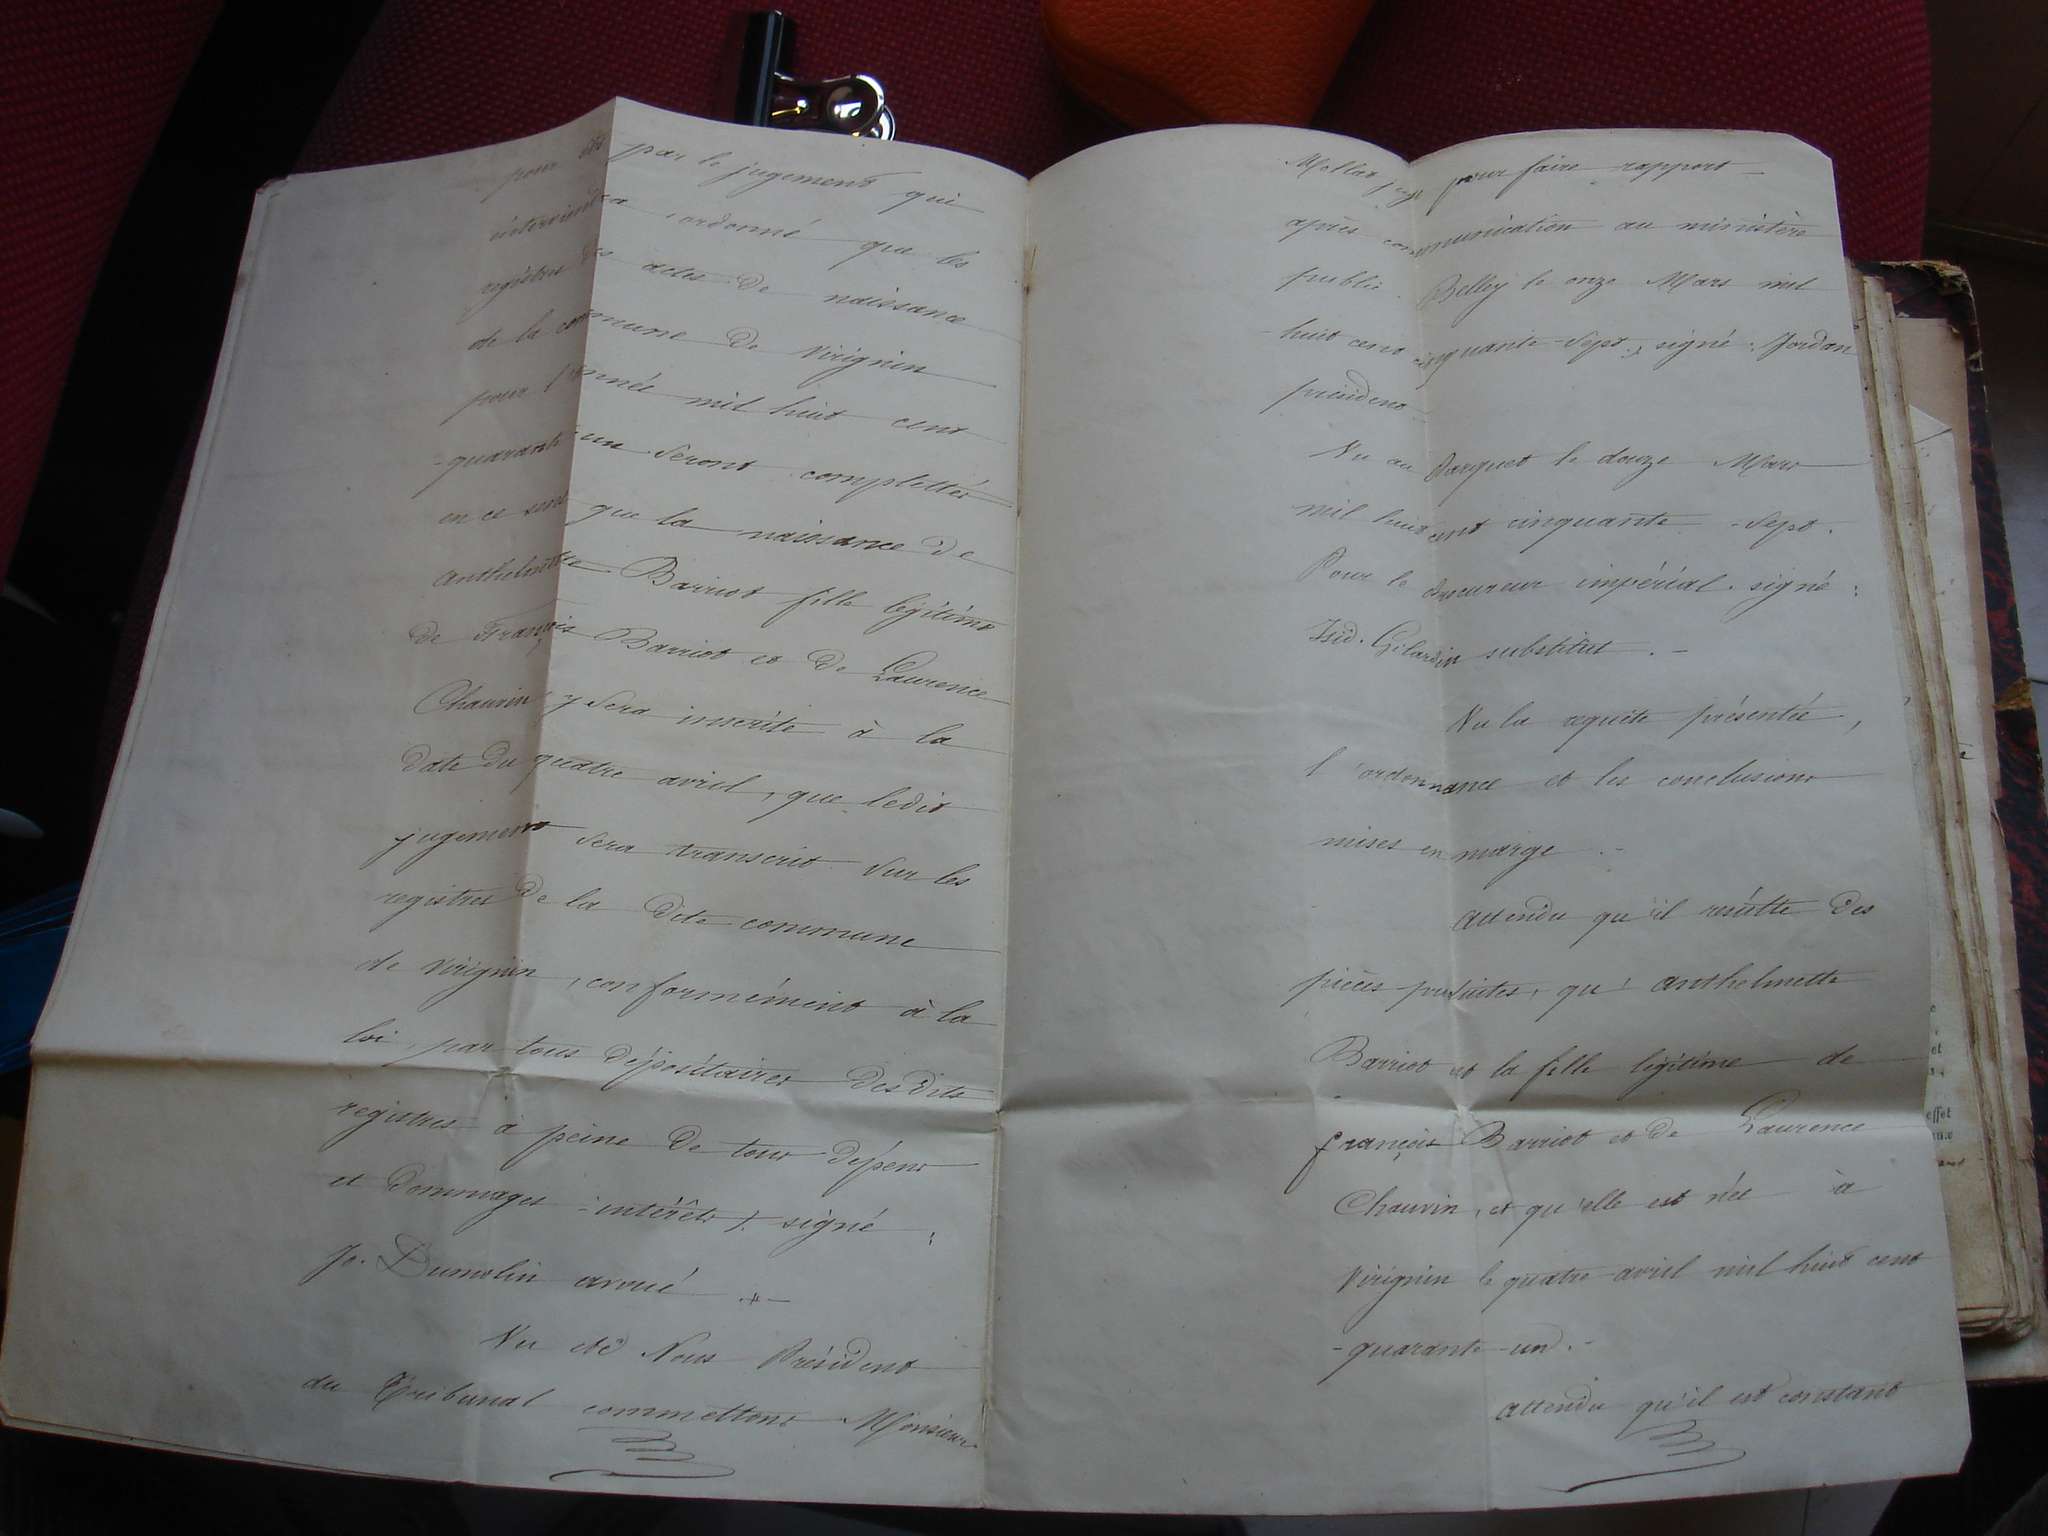 pour être par le jugement qui
interviendra ordonné que les
registres des actes de naissance
de la commune de Virignin
pour l'année mil huit cent
-quarante-un seront complettés
en ce sens que la naissance de
anthelmette Barriot fille légitime
de François Barriot et de Laurence
Chauvin y sera inscrite à la
date du quatre avril, que ledit
jugement sera transcrit sur les
registres de la dite commune
de Virignin, conformément à la
loi, par tous dépositaires desdits
registres à peine de tous dépens
et dommages-intérêts ). signé :
Jh. Dumolin avoué
Vu etc Nous Président
du Tribunal commettons Monsieur
Mollat juge pour faire rapport
après communication au ministère
public. Belley le onze Mars mil
huit cent cinquante-sept, signé : Jordan
président
Vu au Parquet le douze Mars
mil huit cent cinquante-sept.
Pour le procureur impérial. signé :
Isid. Gilardin substitut. -
Vu la requête présentée,
l'ordonnance et les conclusions
mises en marge. -
attendu qu'il résulte des
pièces produites, qu'anthelmette
Barriot est la fille légitime de
françois Barriot et de Laurence
Chauvin, et qu'elle est née à
Virignin le quatre avril mil huit cent
-quarante-un. -
attendu qu'il est constant
et
effet